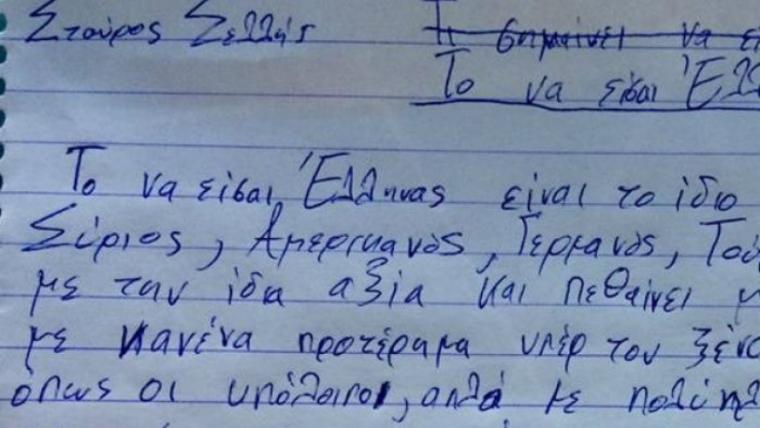 Σταύρος Σελλής Τι σημαίνει να εί
Το να είσαι Έλλ
Το να είσαι Έλληνας είναι το ίδιο
Σύριος, Αμερικανός, Γερμανός, Τού
με την ίδια αξία και πεθαίνει μ
με κανένα προτέραμα υπέρ του ξένο
όπως οι υπόλοιποι, αλλά με πολύπλ